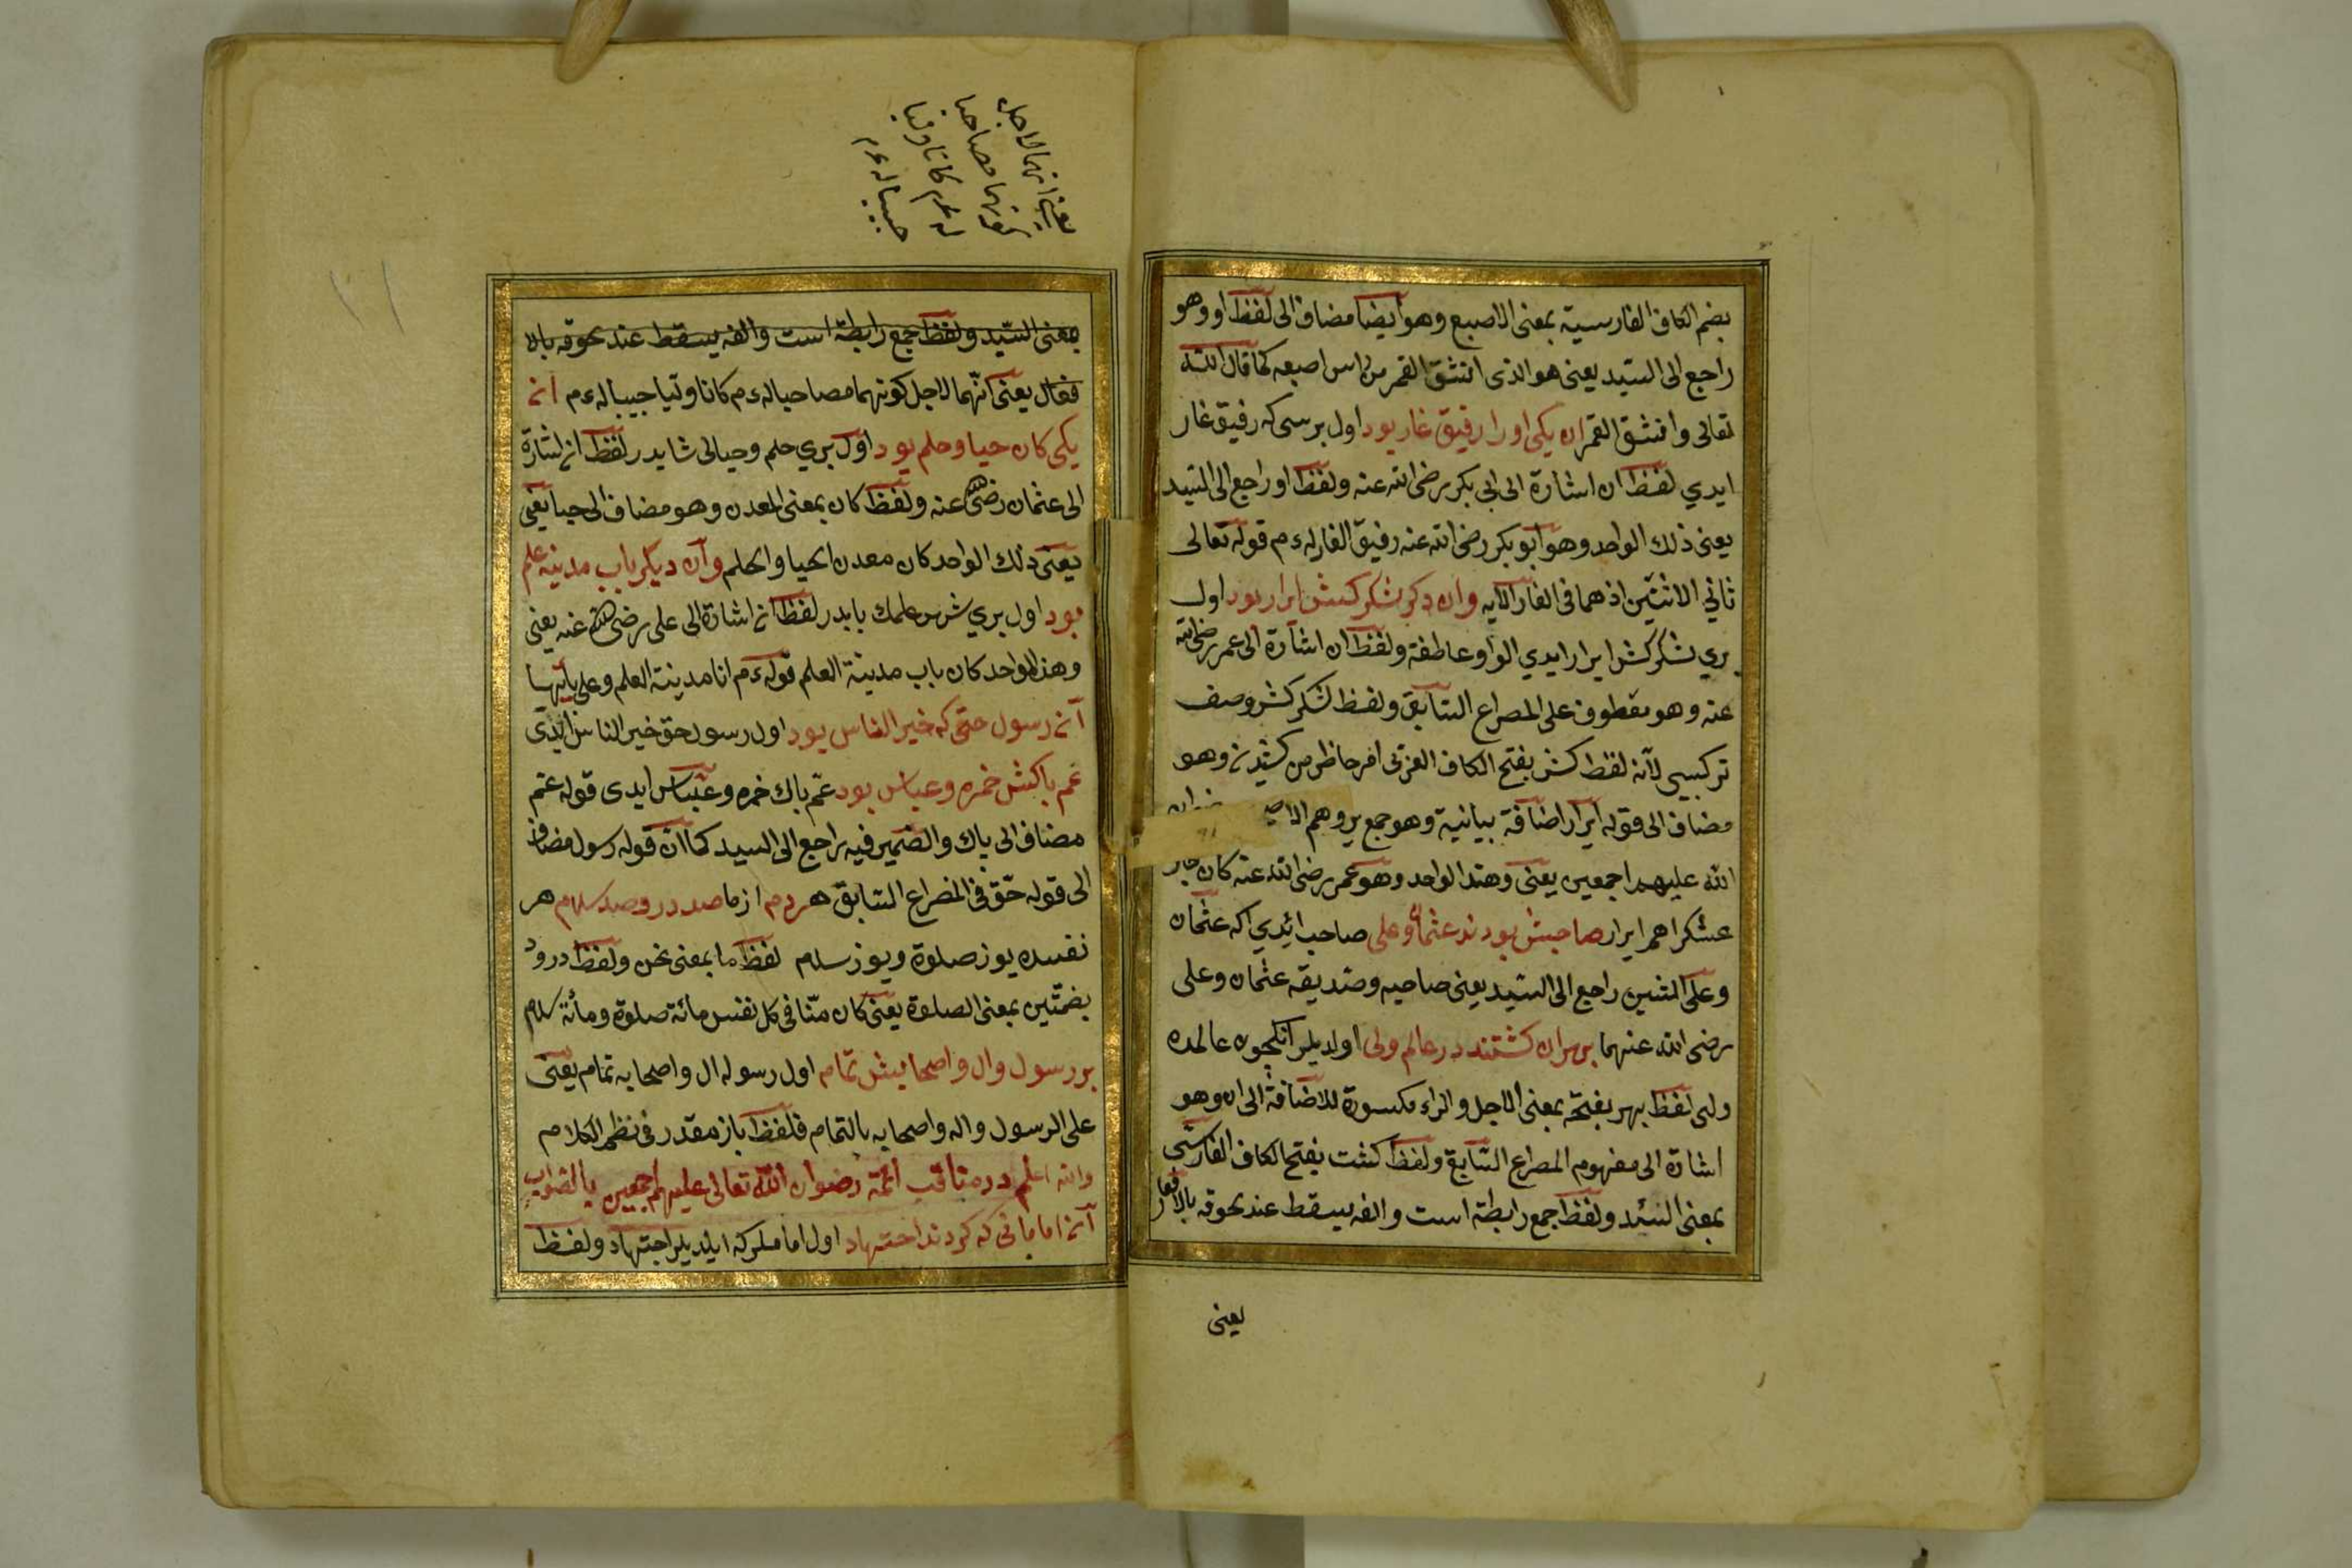 بضم الكاف الفارسية بمعنى الاصبع وهو ايضا مضاف الى لفظ او وهو
راجع الى السيد يعنى هو الذى انشق القمر من راس اصبعه كما قال الله
تعالى وانشق القمر ان يكى اورا رفيق غار بود اول برسى كه رفيق غار
ايدي لفظ ان اشارة الى ابى بكر رضى الله عنه ولفظ او راجع الى السيد
يعنى ذلك الواحد وهو ابو بكر رضى الله عنه رفيق الغار له ءم قوله تعالى
ثاني الاثنين اذ هما فى الغار الآيه وان دكر لشكر كش ابرار بود اول
بري لشكر كش ابرار ايدي الواو عاطفة ولفظ ان اشارة الى عمر رضى الله
عنه وهو معطوف على المصراع السابق ولفظ لشكر كش وصف
تركيبى لآنه لفظ كش بفتح الكاف العربى امر حاظر من كشيدن وهو
مضاف الى قوله ابرار اضافة بيانية وهو جمع بر وهم
الله عليهم اجمعين يعنى وهذا الواحد وهو عمر رضى الله عنه كان
عشكراهم ابرار صاحبش بودند عثمان وعلى صاحب ائدي اكه عثمان
وعلى الشين راجع الى السيد يعنى صاحبه وصديقه عثمان وعلى
رضى الله عنهما بهران كشتند در عالم ولى اولديلر انكچون عالمده
ولى لفظ بهر بفتحه بمعنى الاجل والراء مكسورة للاضافة الى ان وهو
اشارة الى مفهوم المصراع السابق ولفظ كشت بفتح الكاف الفارسى
بمعنى السيد ولفظ جمع رابطة است والفه يسقط عند لحوقه بالافعال
يعنى
يعنى انهما لاجل
كونهما مصاحبا
له ءم كانا وليا
حبيبا له ءم
بمعنى السيد ولفظ جمع رابطة است والفه يسقط عند لحوقه بالا
فعال يعنى انهما لاجل كونهما مصاحبا له ءم كانا وليا حبيبا له ءم ان
يكى كان حيا وحلم بود اول بري حلم وحيالى شايدر لفظ ان اشارة
الى عثمان رضى الله عنه ولفظ كان بمعنى المعدن وهو مضاف الى حيا يعنى
يعنى ذلك الواحد كان معدن الحيا والحلم وآن ديكر باب مدينه علم
بود اول بري شهر علمك بابدر لفظ ان اشارة الى على رضى الله عنه يعنى
وهذا الواحد كان باب مدينة العلم قوله ءم انا مدينة العلم وعلى بابها
آن رسول حق كه خير الناس بود اول رسول حق خير الناس ايدى
عم باكش حمزه وعباس بود عم باك حمزه وعباس ايدى قوله عم
مضاف الى باك والضمير فيه راجع الى السيد كما ان قوله رسول مضاف
الى قوله حق فى المصراع السابق هردم از ما صد درود صد سلام هر
نفسده يوز صلوة ويوز سلام لفظ ما بمعنى نحن ولفظ درود
بضمتين بمعنى الصلوة يعنى كان منا فى كل نفس مائة صلوة ومائة سلام
بر رسول وال واصحابش تمام اول رسوله ال واصحابه تمام يعنى
على الرسول واله واصحابه بالتمام فلفظ باز مقدر فى نظم الكلام
والله اعلم در مناقب ائمة رضوان الله تعالى عليهم اجمعين بالصواب
آن امامانى كه كردند اجتهاد اول اماملركه ايلديلر اجتهاد ولفظ